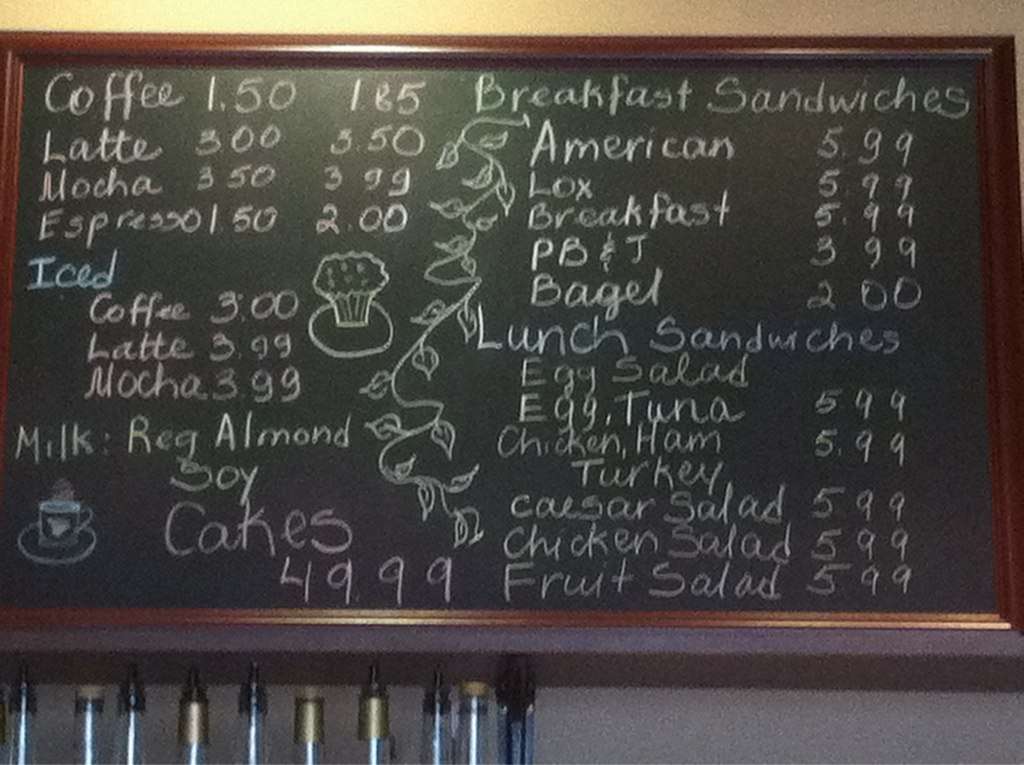 Coffee 1.50 1.85
Latte 3.00 3.50
Mocha 3 50 3 99
Espresso 1.50 2.00
Iced
Coffee 3.00
Latte 3.99
Mocha 3.99
Milk: Reg Almond
Soy
Cakes
49.99
Breakfast Sandwiches
American 5.99
Lox 5.99
Breakfast 5.99
PB & J 3 99
Bagel 2 00
Lunch Sandwiches
Egg Salad
Egg, Tuna 5 99
Chicken, Ham 5.99
Turkey
caesar Salad 5 99
Chicken Salad 5 99
Fruit Salad 5.99